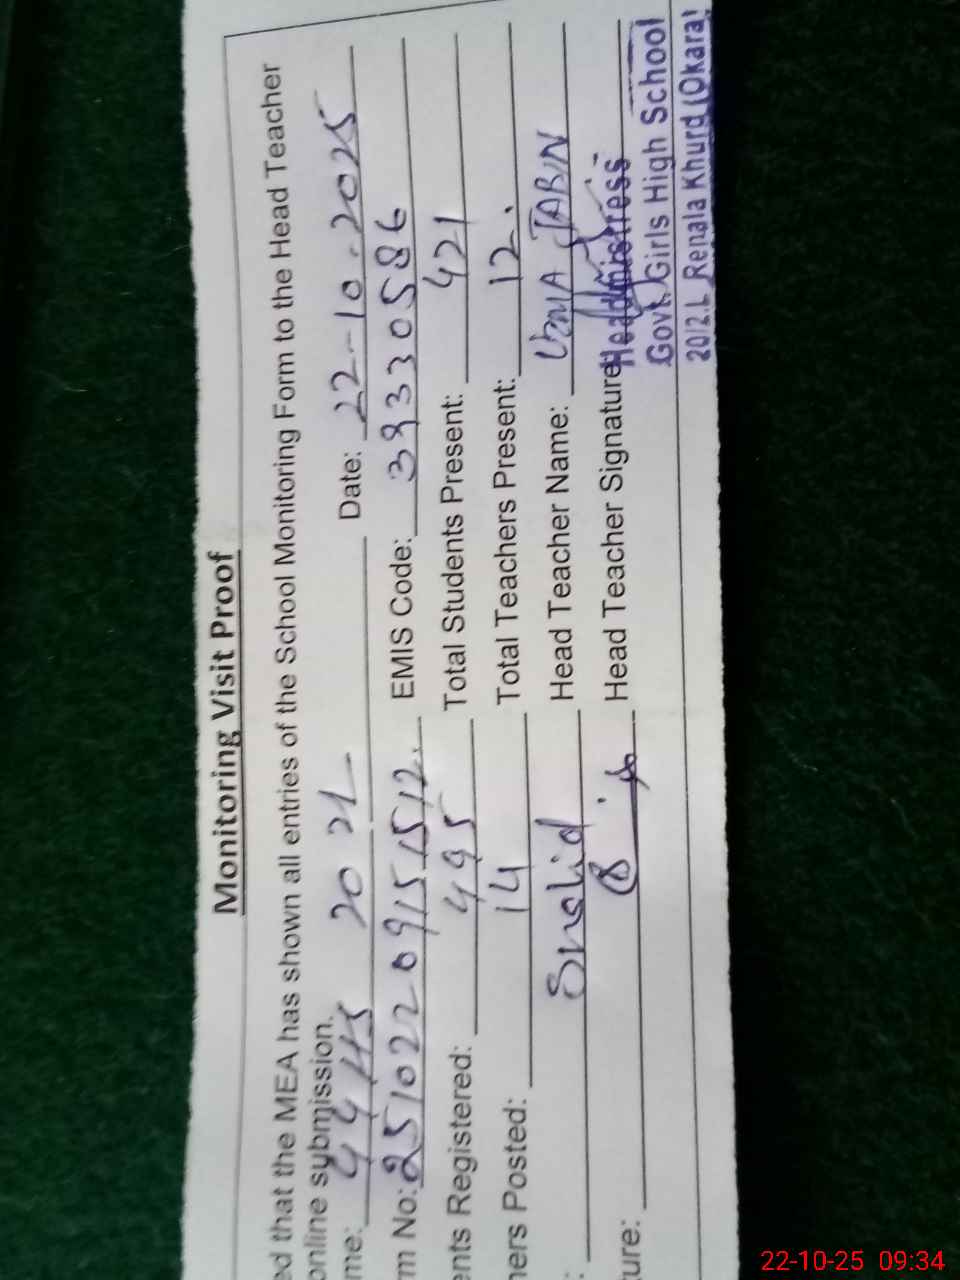 Monitoring Visit Proof
ed that the MEA has shown all entries of the School Monitoring Form to the Head Teacher
online submission.
me: GGHS 20 2L Date: 22-10-2025
rm No: 25102209151512. EMIS Code: 39330586
ents Registered: 495 Total Students Present: 421
hers Posted: 14 Total Teachers Present: 12.
: Head Teacher Name: UZMA JABIN
ture: Head Teacher Signature:
Headmistress
Govt. Girls High School
20/2.L Renala Khurd (Okara)
22-10-25 09:34